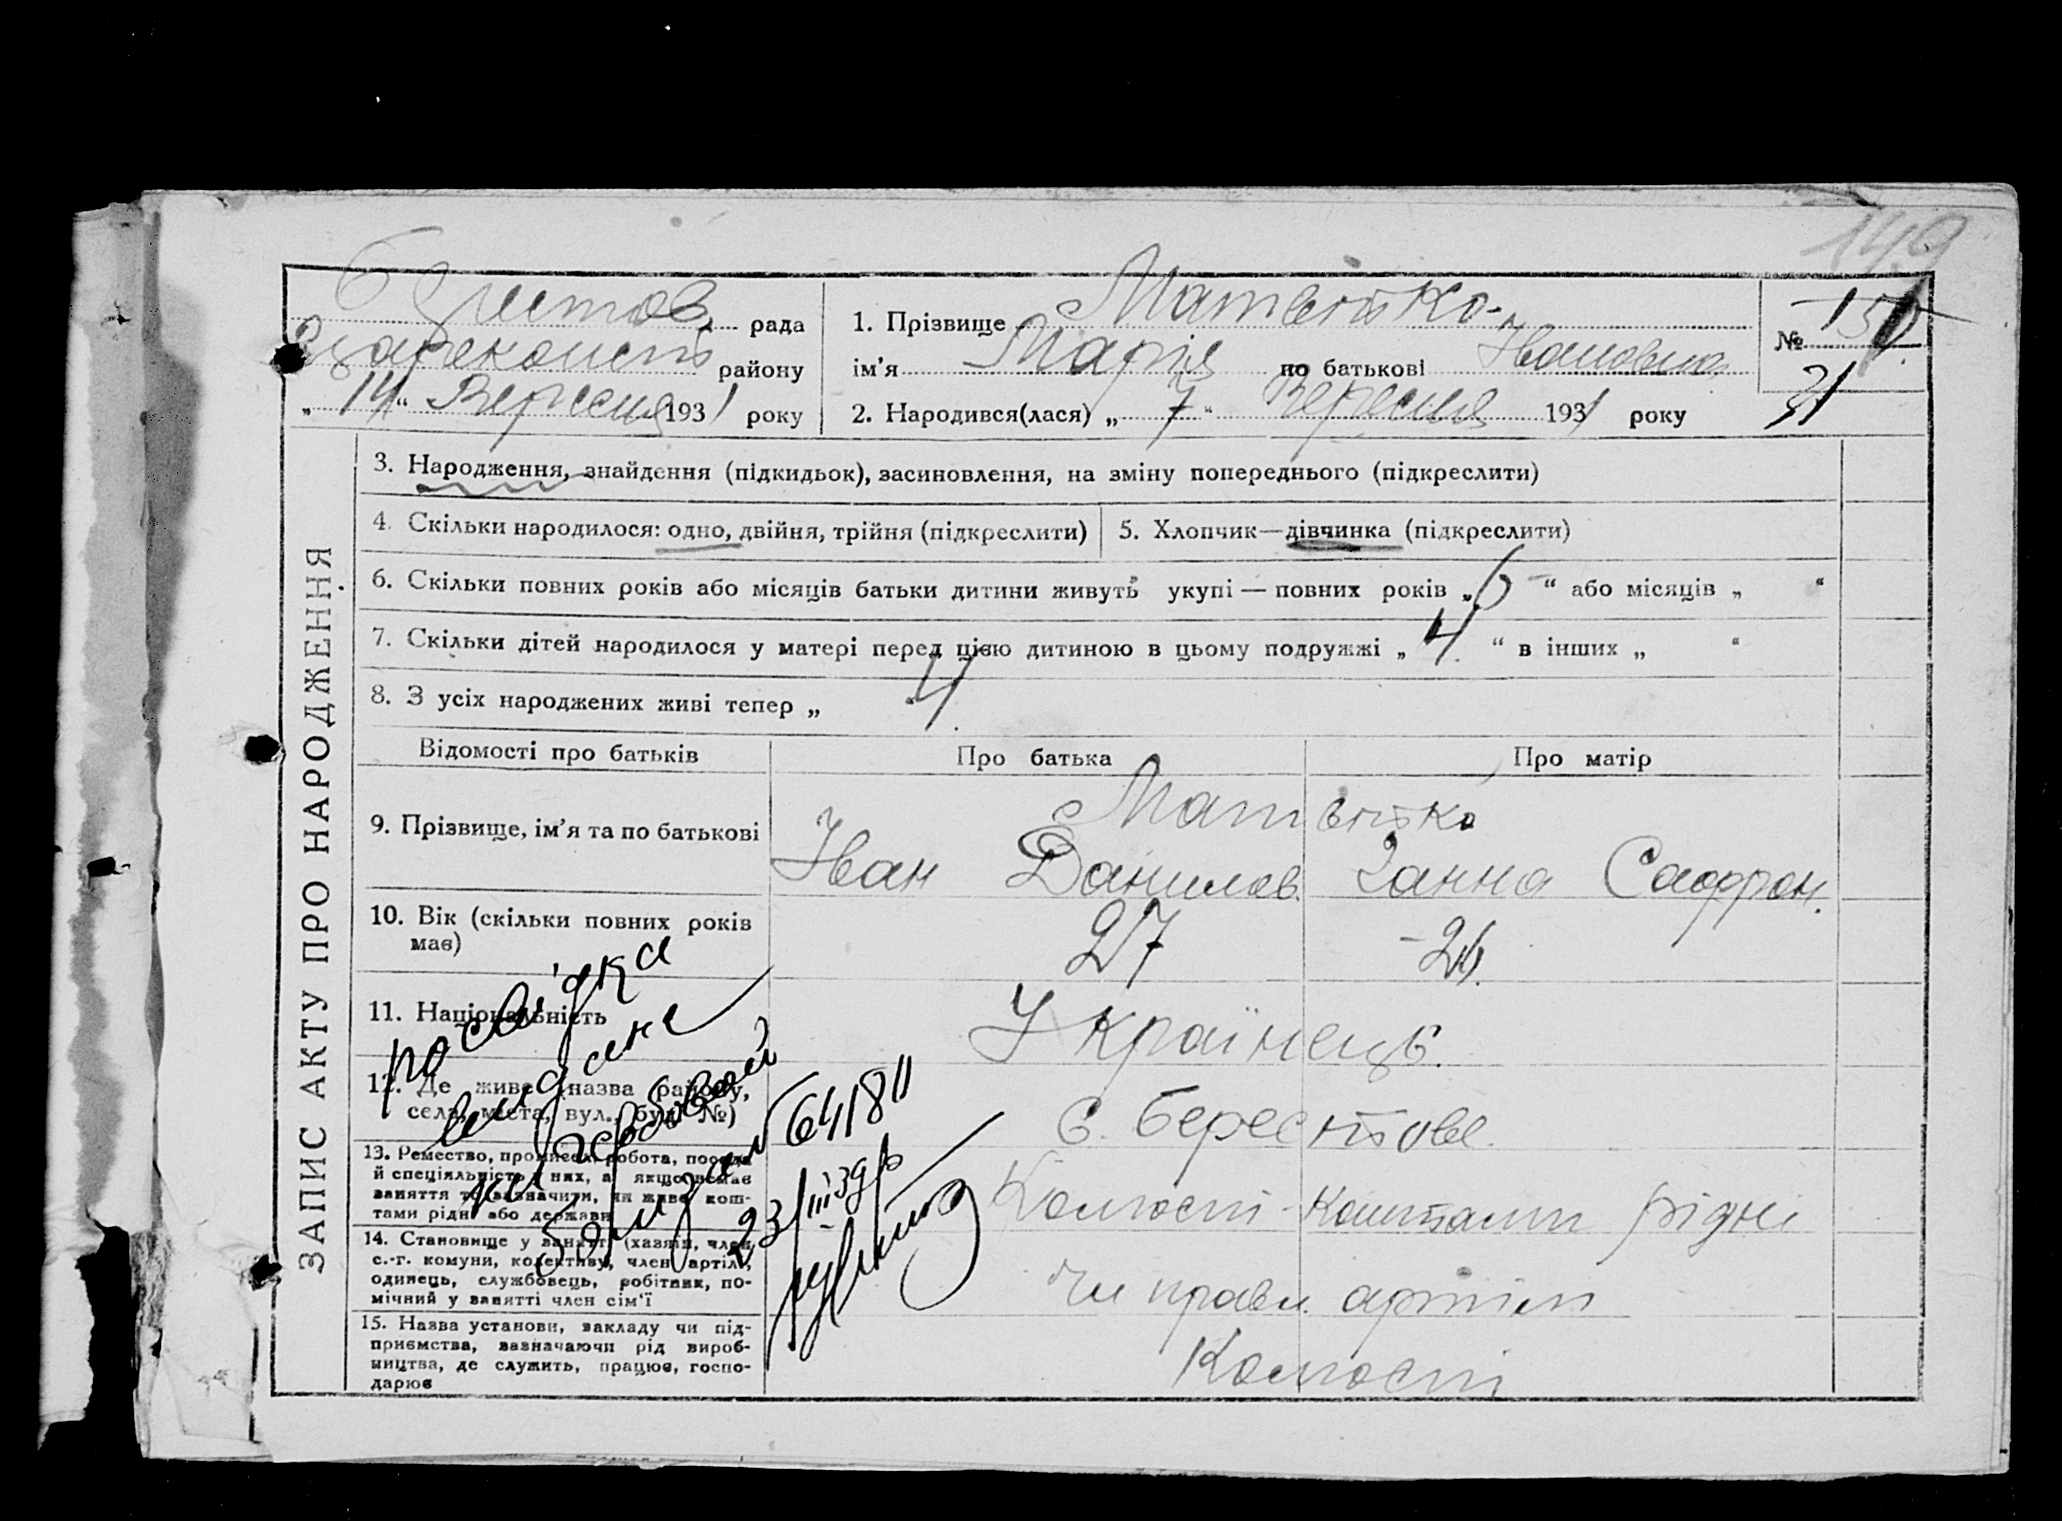 149
рада
району
„ 14 “ Вересня 1931 року
1. Прізвище Матвієнко
ім'я Марія по батькові Івановна
2. Народився(лася) „ 7 “ Вересня 1931 року
№
31
ЗАПИС АКТУ ПРО НАРОДЖЕННЯ
3. Народження, знайдення (підкидьок), засиновлення, на зміну попереднього (підкреслити)
4. Скільки народилося: одно, двійня, трійня (підкреслити)
5. Хлопчик—дівчинка (підкреслити)
6. Скільки повних років або місяців батьки дитини живуть укупі — повних років „ 6 “ або місяців „ “
7. Скільки дітей народилося у матері перед цією дитиною в цьому подружжі „ 4 “ в інших „ “
8. З усіх народжених живі тепер „ 4
Відомості про батьків
Про батька
Про матір
9. Прізвище, ім'я та по батькові
Іван Данилов. Ганна Сафрон.
10. Вік (скільки повних років
має)
27
26.
11. Національність
Українець.
12. Де живе (назва району,
села, міста, вул., буд. №)
с. Берестове.
13. Ремество, промисел, робота, посада
й спеціяльність у них, а якщо немає
заняття то зазначити, як живе кош-
тами рідні або держави
рідні
14. Становище у занятті (хазяїн, член
с.-г. комуни, колективу, член артілі,
одинець, службовець, робітник, по-
мічний у занятті член сім'ї
15. Назва установи, закладу чи під-
приємства, зазначаючи рід вироб-
ництва, де служить, працює, госпо-
дарює
посвідка
видана
на гербовой
64/8
23/III 39р